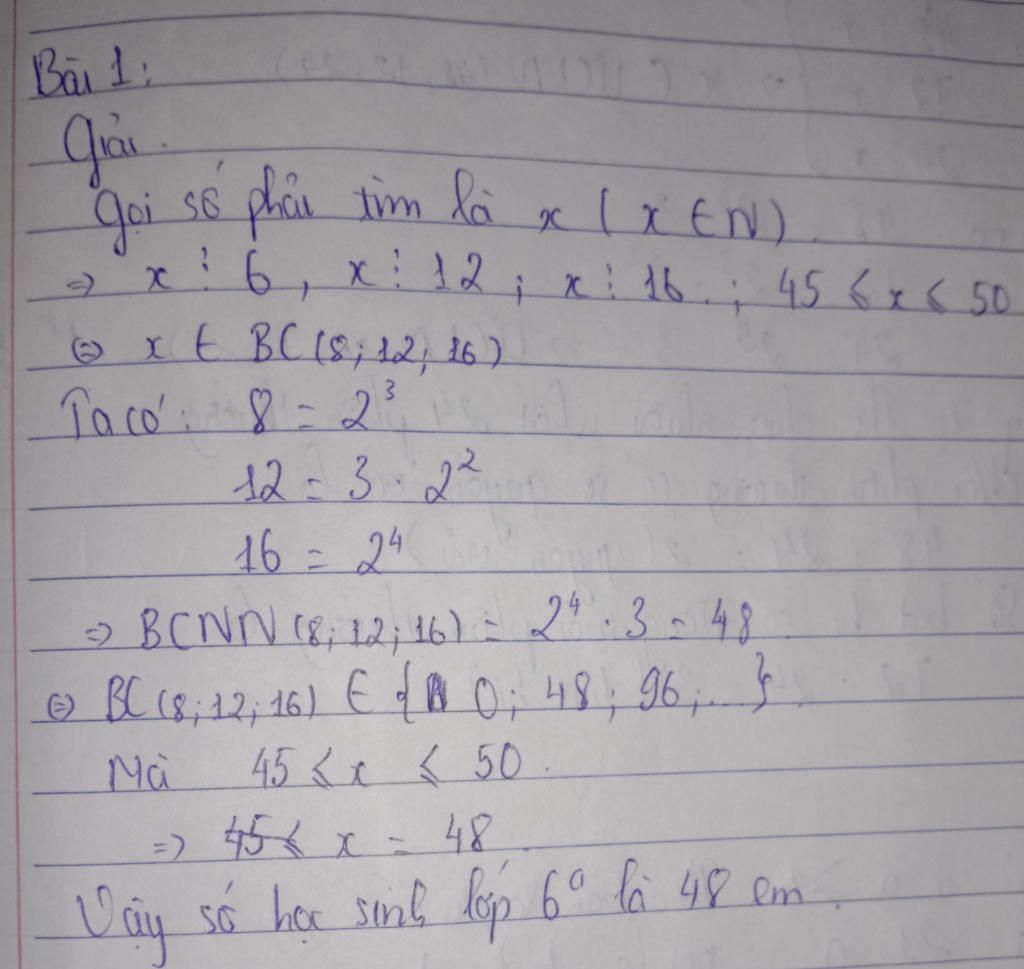 Bài 1:
Giải.
Gọi số phải tìm là x ( x ∈ N ).
=> x ⋮ 6, x ⋮ 12 ; x ⋮ 16 . ; 45 ≤ x ≤ 50
<=> x ∈ BC (8; 12; 16)
Ta có: 8 = 2³
12 = 3 · 2²
16 = 2⁴
=> BCNN (8; 12; 16) = 2⁴ · 3 = 48
<=> BC (8; 12; 16) ∈ { 0; 48; 96; ... }.
Mà 45 ≤ x ≤ 50.
=> 45 ≤ x = 48
Vậy số học sinh lớp 6a là 48 em.